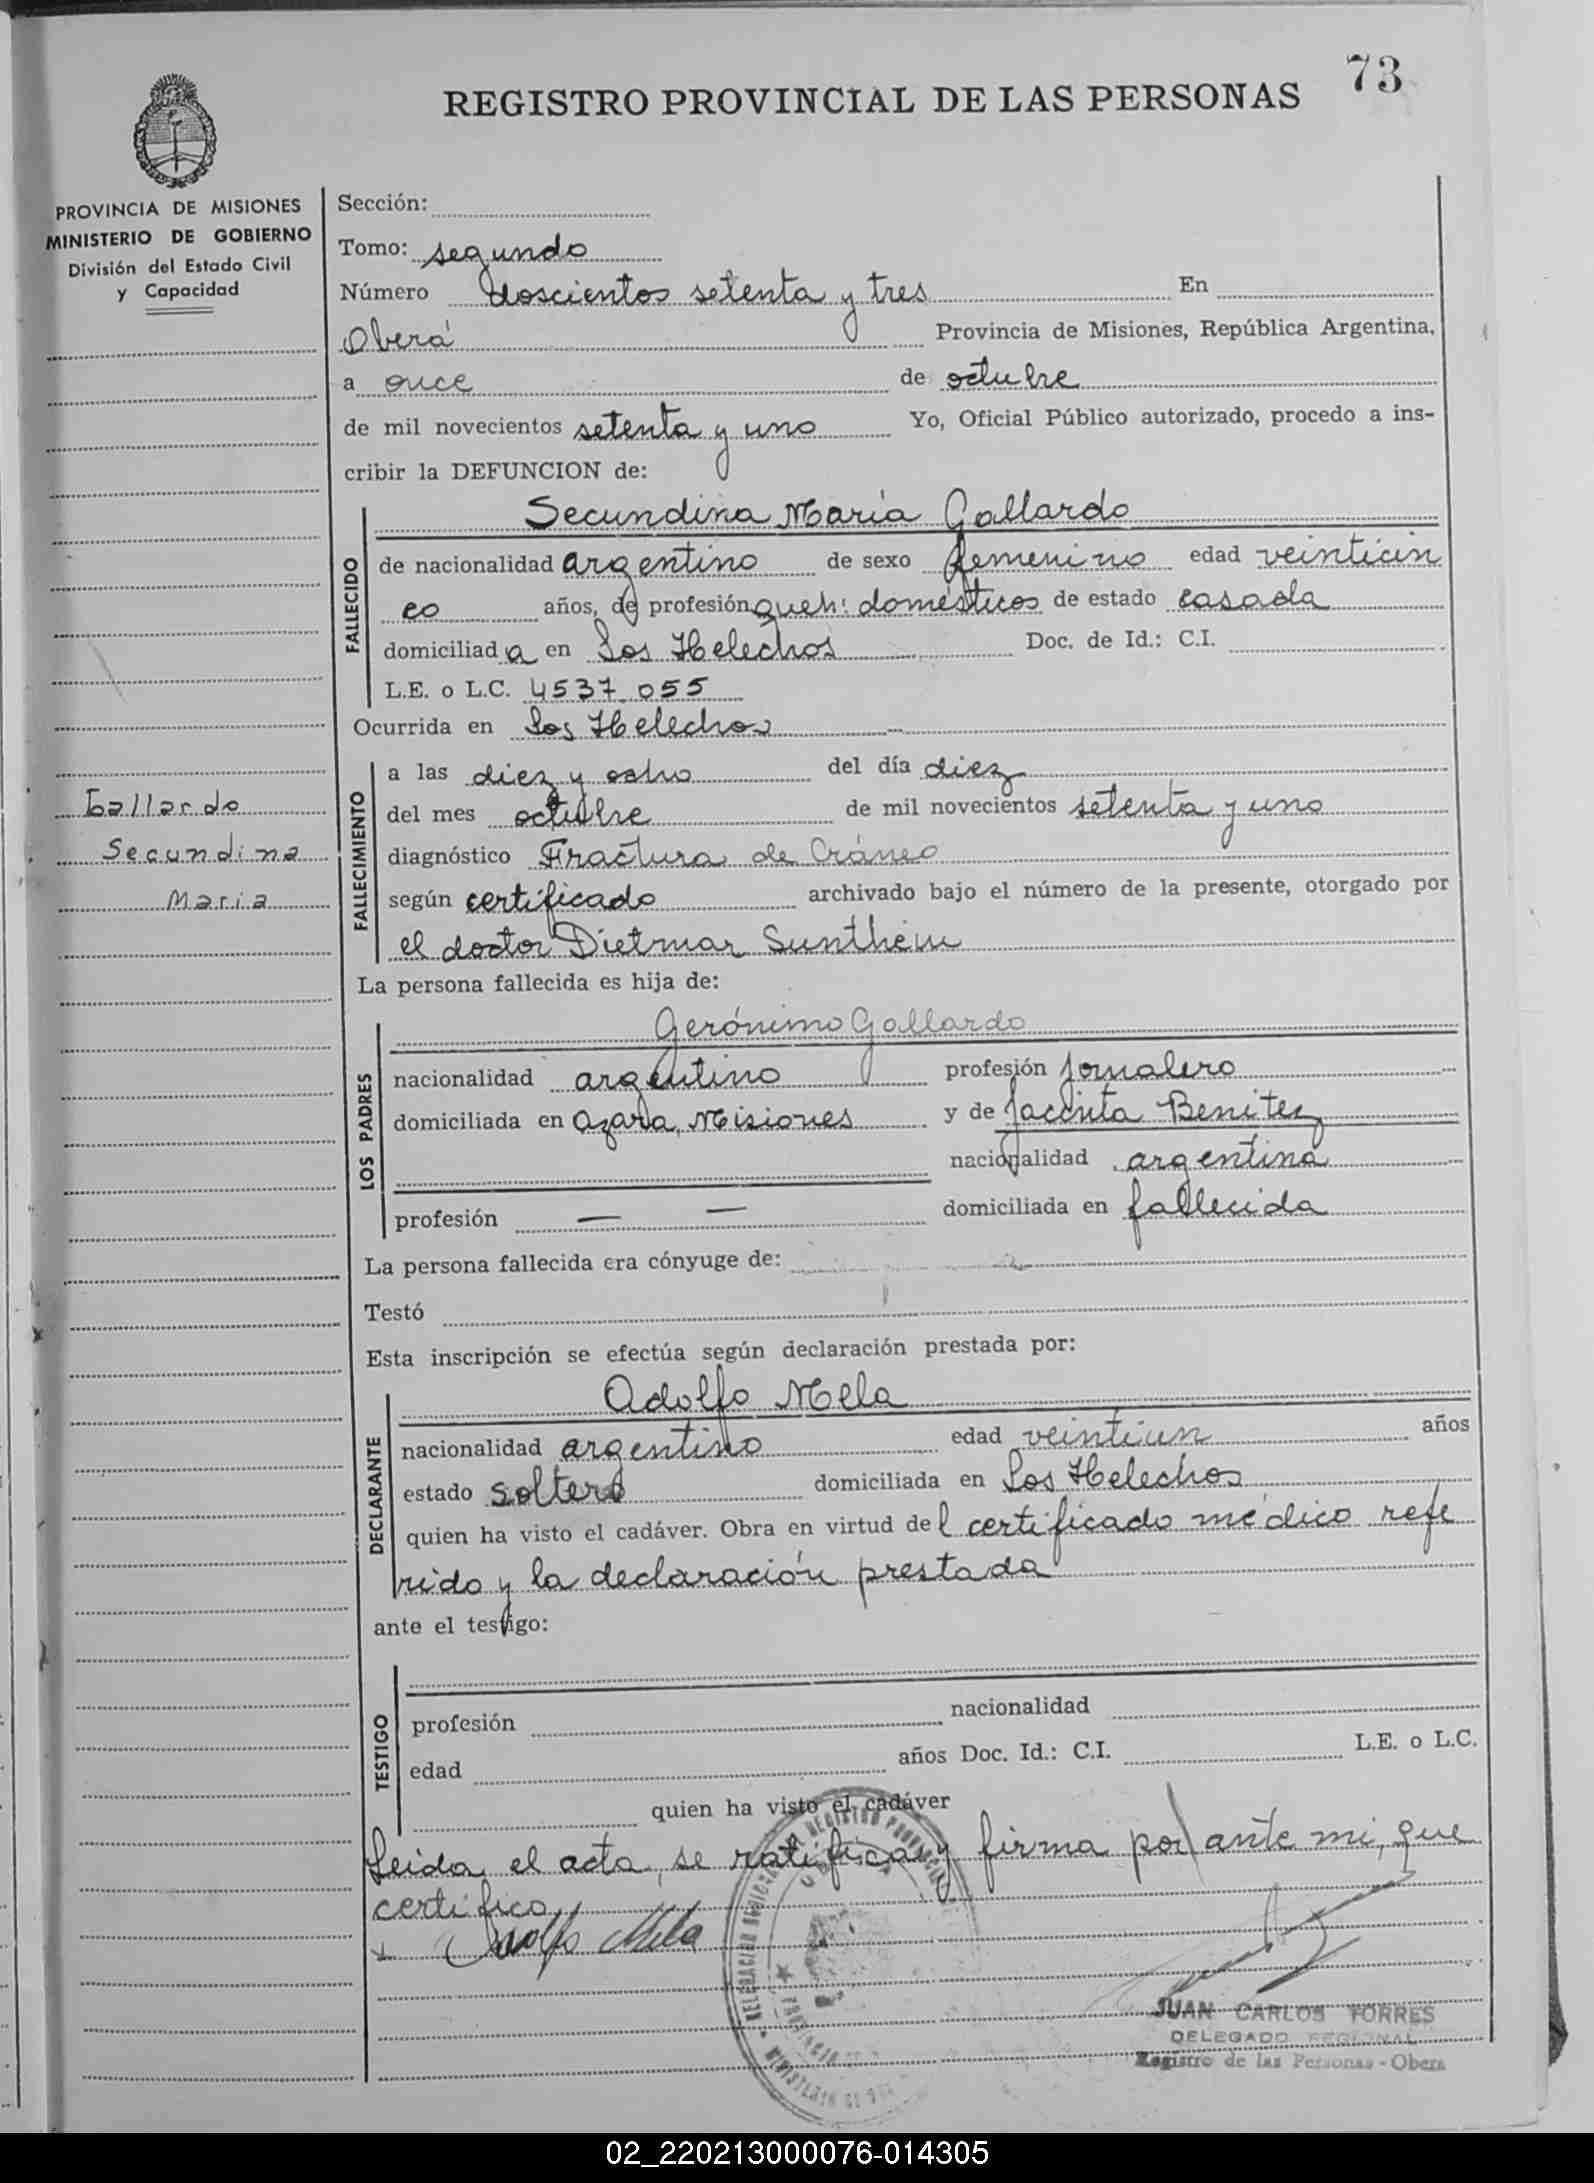 73
REGISTRO PROVINCIAL DE LAS PERSONAS
PROVINCIA DE MISIONES
MINISTERIO DE GOBIERNO
División del Estado Civil
y Capacidad
Gallardo
Secundina
Maria
Sección:
Tomo: segundo
Número doscientos setenta y tres En
Oberá Provincia de Misiones, República Argentina,
a once de octubre
de mil novecientos setenta y uno Yo, Oficial Público autorizado, procedo a ins-
cribir la DEFUNCION de:
FALLECIDO
Secundina María Gallardo
de nacionalidad argentino de sexo femenino edad veinticin
co años, de profesión queh: domésticos de estado casada
domiciliada en Los Helechos Doc. de Id.: C.I.
L.E. o L.C. 4537.055
Ocurrida en Los Helechos
FALLECIMIENTO
a las diez y ocho del día diez
del mes octubre de mil novecientos setenta y uno
diagnóstico Fractura de Cráneo
según certificado archivado bajo el número de la presente, otorgado por
el doctor Dietmar
La persona fallecida es hija de:
LOS PADRES
Gerónimo Gallardo
nacionalidad argentino profesión Jornalero
domiciliada en Azara, Misiones y de Jacinta Benitez
nacionalidad argentina
profesión — — domiciliada en fallecida
La persona fallecida era cónyuge de:
Testó
Esta inscripción se efectúa según declaración prestada por:
DECLARANTE
Adolfo Mela
nacionalidad argentino edad veintiun años
estado soltero domiciliada en Los Helechos
quien ha visto el cadáver. Obra en virtud del certificado médico refe
rido y la declaración prestada
ante el testigo:
TESTIGO
profesión nacionalidad
edad años Doc. Id.: C.I. L.E. o L.C.
quien ha visto el cadáver
Leida el acta, se ratifica y firma por ante mi, que
certifico
Adolfo Mela
JUAN CARLOS TORRES
DELEGADO REGIONAL
Registro de las Personas - Obera
02_220213000076-014305